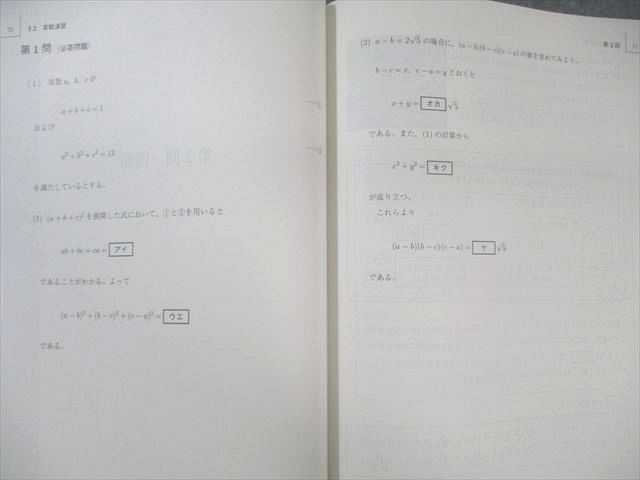 70
§2 実戦演習
第1問 (必答問題)
〔1〕 実数 a, b, c が
a+b+c=1 ……①
および
a²+b²+c²=13 ……②
を満たしているとする。
(1) (a+b+c)² を展開した式において, ①と②を用いると
ab+bc+ca= アイ
であることがわかる。よって
(a-b)²+(b-c)²+(c-a)²= ウエ
である。
第2回
71
(2) a-b=2√5 の場合に, (a-b)(b-c)(c-a) の値を求めてみよう。
b-c=x, c-a=y とおくと
x+y= オカ √5
である。また, (1) の計算から
x²+y²= キク
が成り立つ。
これらより
(a-b)(b-c)(c-a)= ケ √5
である。